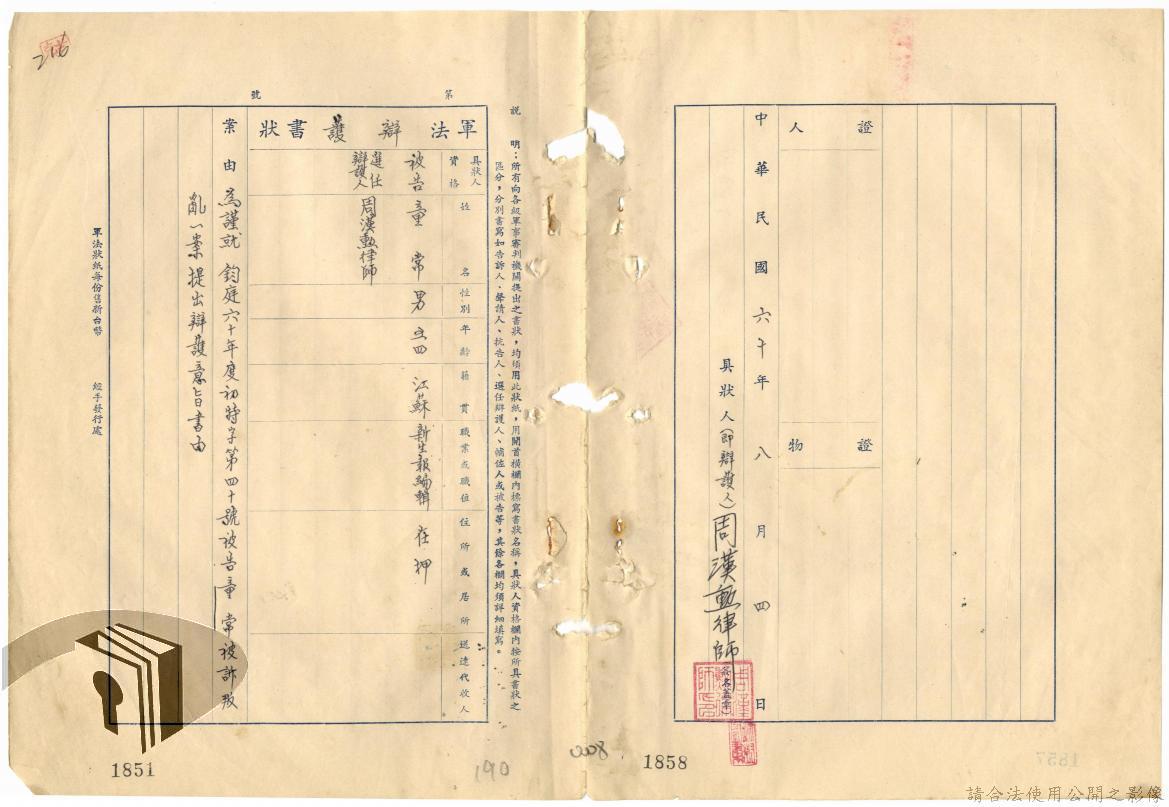 證人
證物
中華民國六十年八月四日
具狀人(即辯護人)周漢勳律師
(簽名蓋章)
1858
1857
說明：所有向各級軍事審判機關提出之書狀，均須用此狀紙，用開首橫欄內標寫書狀名稱，具狀人資格欄內按所具書狀之
區分，分別書寫如告訴人、聲請人、抗告人、選任辯護人、輔佐人或被告等，其餘各欄均須詳細填寫。
第 號
軍法辯護書狀
具狀人資格 姓名 性別 年齡 籍貫 職業或職位 住所或居所 送達代收人
被告 童常 男 五四 江蘇 新生報編輯 在押
選任辯護人 周漢勳律師
案由 為謹就 鈞庭六十年度初特字第四十號被告童常被訴叛
亂一案提出辯護意旨書由
軍法狀紙每份售新台幣 經手發行處
1851
190
216
請合法使用公開之影像